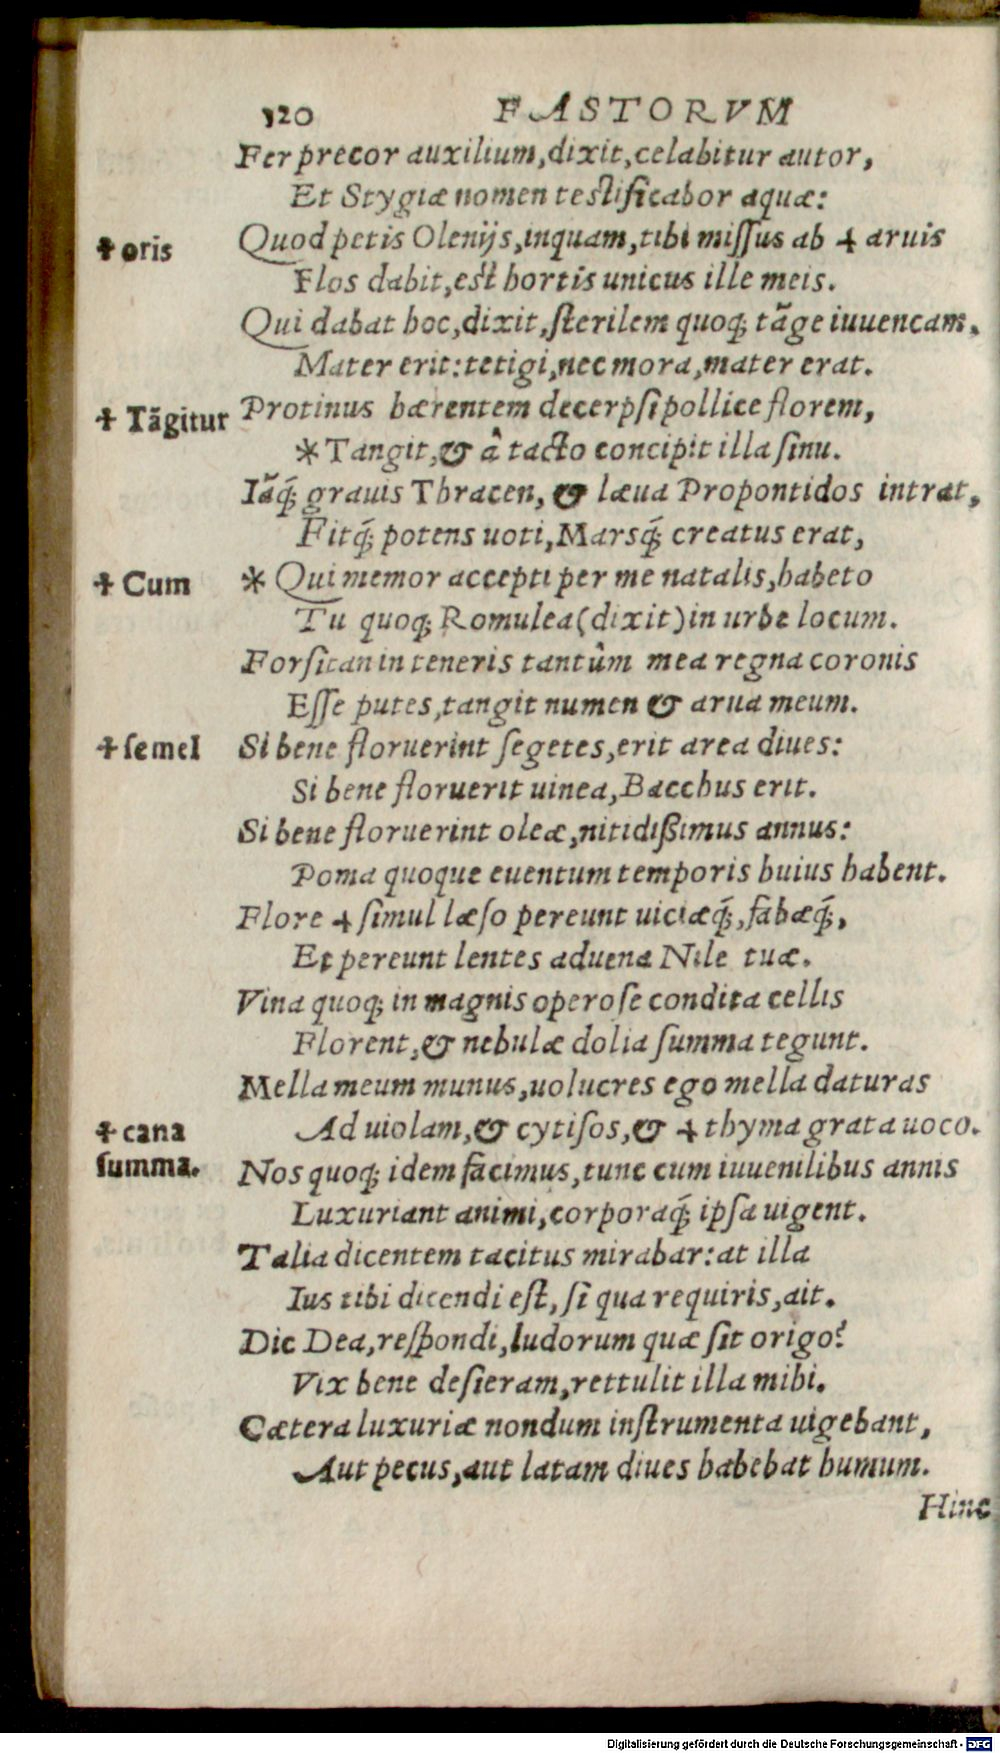 120 FASTORVM
Fer precor auxilium, dixit, celabitur autor,
Et Stygiæ nomen testificabor aquæ:
✝ oris
Quod petis Olenijs, inquam, tibi missus ab ✝ aruis
Flos dabit, est hortis unicus ille meis.
Qui dabat hoc, dixit, sterilem quoq; tãge iuuencam,
Mater erit: tetigi, nec mora, mater erat.
✝ Tãgitur
Protinus hærentem decerpsi pollice florem,
* Tangit, & â tacto concipit illa sinu.
Iãq́; grauis Thracen, & læua Propontidos intrat,
Fitq́; potens uoti, Marsq́; creatus erat,
✝ Cum
* Qui memor accepti per me natalis, habeto
Tu quoq; Romulea (dixit) in urbe locum.
Forsitan in teneris tantûm mea regna coronis
Esse putes, tangit numen & arua meum.
✝ semel
Si bene floruerint segetes, erit area diues:
Si bene floruerit uinea, Bacchus erit.
Si bene floruerint oleæ, nitidißimus annus:
Poma quoque euentum temporis huius habent.
Flore ✝ simul læso pereunt uiciæq́;, fabæq́;,
Et pereunt lentes aduena Nile tuæ.
Vina quoq; in magnis operose condita cellis
Florent, & nebulæ dolia summa tegunt.
Mella meum munus, uolucres ego mella daturas
✝ cana
summa.
Ad uiolam, & cytisos, & ✝ thyma grata uoco.
Nos quoq; idem facimus, tunc cum iuuenilibus annis
Luxuriant animi, corporaq́; ipsa uigent.
Talia dicentem tacitus mirabar: at illa
Ius tibi dicendi est, si qua requiris, ait.
Dic Dea, respondi, ludorum quæ sit origo?
Vix bene desieram, rettulit illa mihi.
Cætera luxuriæ nondum instrumenta uigebant,
Aut pecus, aut latam diues habebat humum.
Hinc
Digitalisierung gefördert durch die Deutsche Forschungsgemeinschaft - DFG